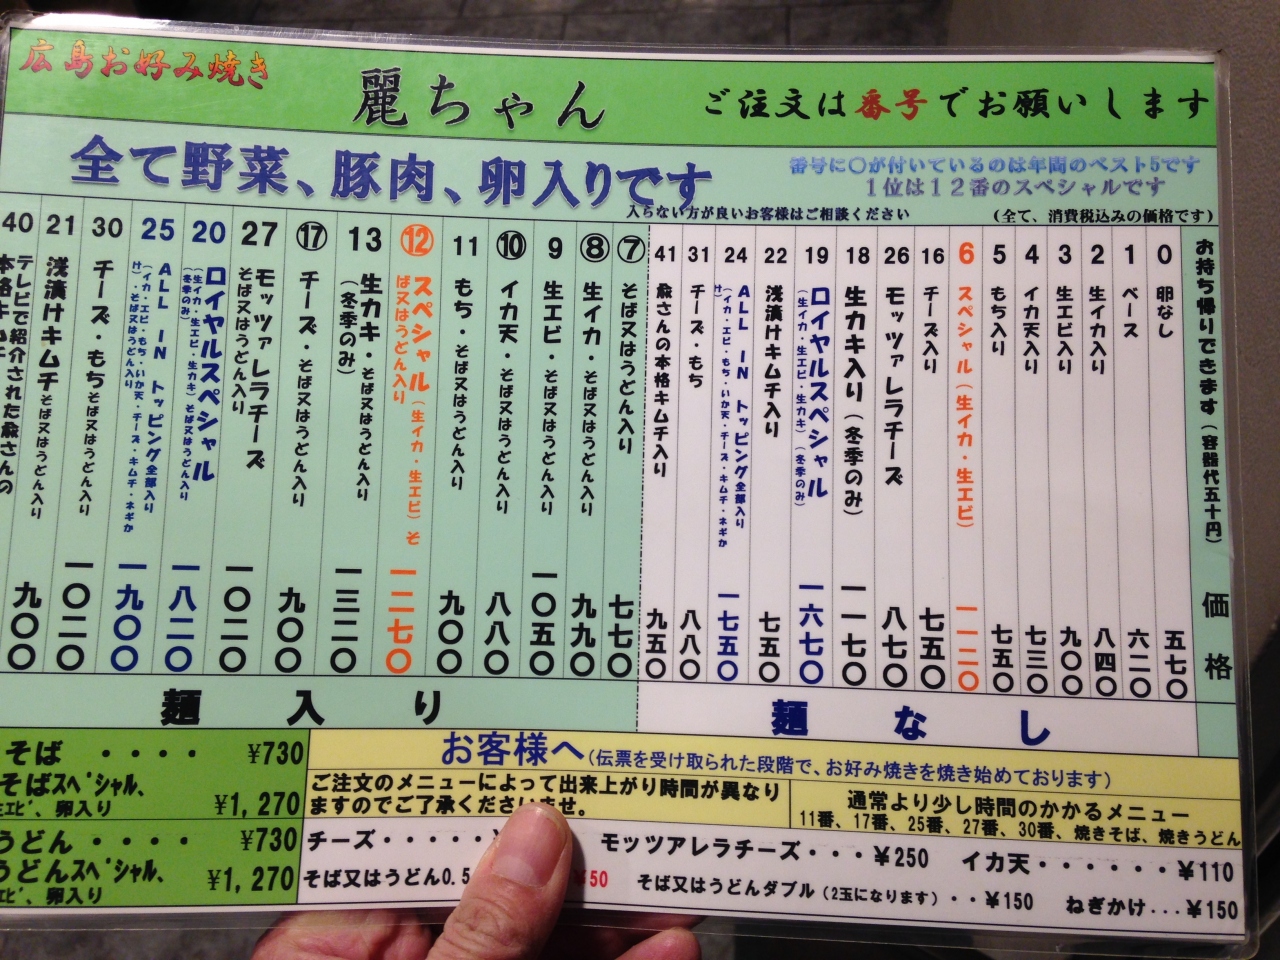 広島お好み焼き
麗ちゃん
ご注文は番号でお願いします
全て野菜、豚肉、卵入りです
番号に〇が付いているのは年間のベスト5です
1位は12番のスペシャルです
入らない方が良いお客様はご相談ください
(全て、消費税込みの価格です)
お持ち帰りできます(容器代五十円) 価格
0 卵なし 五七〇
1 ベース 六二〇
2 生イカ入り 八四〇
3 生エビ入り 九〇〇
4 イカ天入り 七三〇
5 もち入り 七五〇
6 スペシャル(生イカ・生エビ) 一一二〇
16 チーズ入り 七五〇
26 モッツァレラチーズ 八七〇
18 生カキ入り(冬季のみ) 一一七〇
19 ロイヤルスペシャル(生イカ・生エビ・生カキ)(冬季のみ) 一六七〇
22 浅漬けキムチ入り 七五〇
24 ALL IN トッピング全部入り(イカ・エビ・もち・いか天・チーズ・キムチ・ネギかけ) 一七五〇
31 チーズ・もち 八八〇
41 粂さんの本格キムチ入り 九五〇
麺なし
⑦ そば又はうどん入り 七七〇
⑧ 生イカ・そば又はうどん入り 九九〇
9 生エビ・そば又はうどん入り 一〇五〇
⑩ イカ天・そば又はうどん入り 八八〇
11 もち・そば又はうどん入り 九〇〇
⑫ スペシャル(生イカ・生エビ)そば又はうどん入り 一二七〇
13 生カキ・そば又はうどん入り(冬季のみ) 一三二〇
⑰ チーズ・そば又はうどん入り 九〇〇
27 モッツァレラチーズそば又はうどん入り 一〇二〇
20 ロイヤルスペシャル(生イカ・生エビ・生カキ)そば又はうどん入り(冬季のみ) 一八二〇
25 ALL IN トッピング全部入り(イカ・エビ・もち・いか天・チーズ・キムチ・ネギかけ)・そば又はうどん入り 一九〇〇
30 チーズ・もちそば又はうどん入り 九〇〇
21 浅漬けキムチそば又はうどん入り 一〇二〇
40 テレビで紹介された粂さんの本格キムチ 九〇〇
麺入り
そば ・・・・ ¥730
そばスペシャル、
生エビ、卵入り ¥1,270
うどん ・・・・ ¥730
うどんスペシャル、
エビ、卵入り ¥1,270
お客様へ(伝票を受け取られた段階で、お好み焼きを焼き始めております)
ご注文のメニューによって出来上がり時間が異なり
ますのでご了承くださいませ。
通常より少し時間のかかるメニュー
11番、17番、25番、27番、30番、焼きそば、焼きうどん
チーズ・・・・・
モッツァレラチーズ・・・¥250
イカ天・・・・・・¥110
そば又はうどん0.5
¥50
そば又はうどんダブル(2玉になります)・・¥150
ねぎかけ...¥150